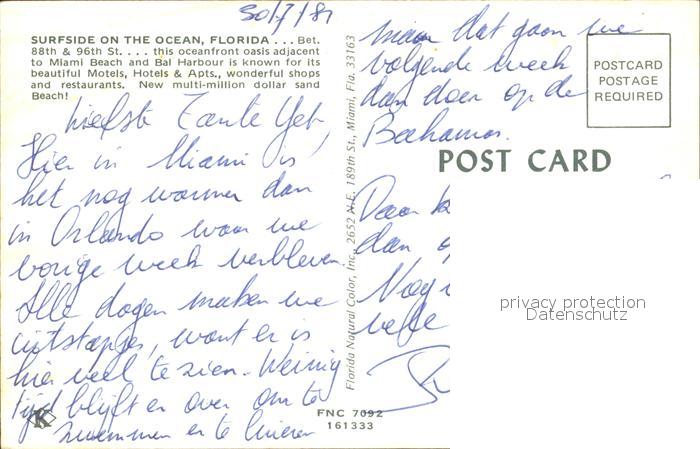 30/7/81
SURFSIDE ON THE OCEAN, FLORIDA ... Bet.
88th & 96th St. . . . . this oceanfront oasis adjacent
to Miami Beach and Bal Harbour is known for its
beautiful Motels, Hotels & Apts., wonderful shops
and restaurants. New multi-million dollar sand
Beach!
Liefste Tante Yet,
Hier in Miami is
het nog warmer dan
in Orlando waar we
vorige week verbleven.
Alle dagen maken we
uitstapjes, want er is
hier veel te zien. Weinig
tijd blijft er over om te
zwemmen en te luieren
K
FNC 7092
161333
Florida Natural Color, Inc. 2652 N.E. 189th St., Miami, Fla. 33163
maar dat gaan we
volgende week
dan doen op de
Bahamas.
POSTCARD
POSTAGE
REQUIRED
POST CARD
Daar
dan
privacy protection
Datenschutz